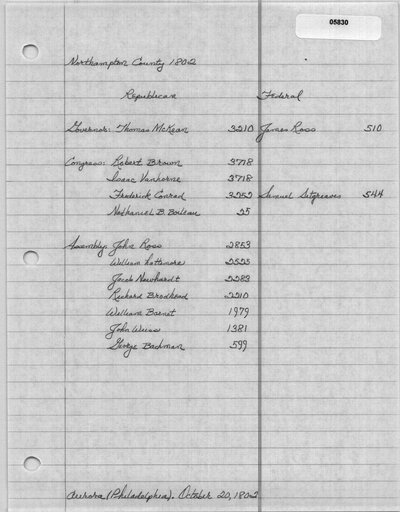 05830
Northampton County 1802
Republican Federal
Governor: Thomas McKean 3210 James Ross 510
Congress: Robert Brown 3718
Isaac Vanhorne 3718
Frederick Conrad 3252 Samuel Sitgreaves 544
Nathaniel B. Boileau 25
Assembly: John Ross 2853
William Lattimore 2525
Jacob Newhardt 2283
Richard Brodhead 2210
William Barnet 1979
John Weiss 1381
George Bachman 599
Aurora (Philadelphia). October 20, 1802